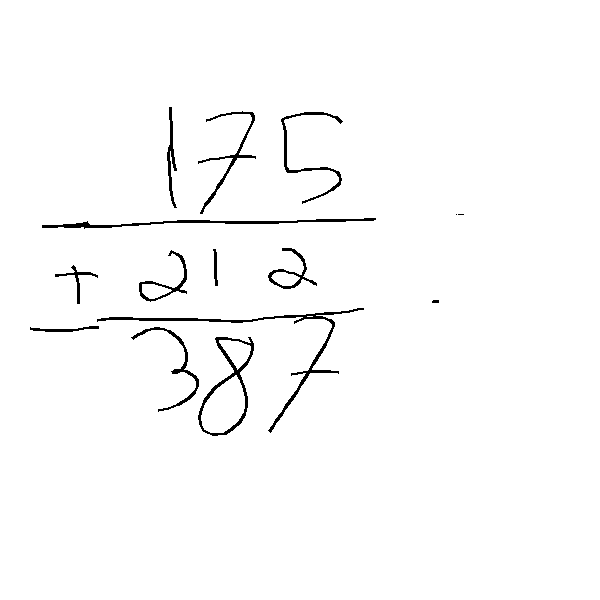 175
+ 212
387